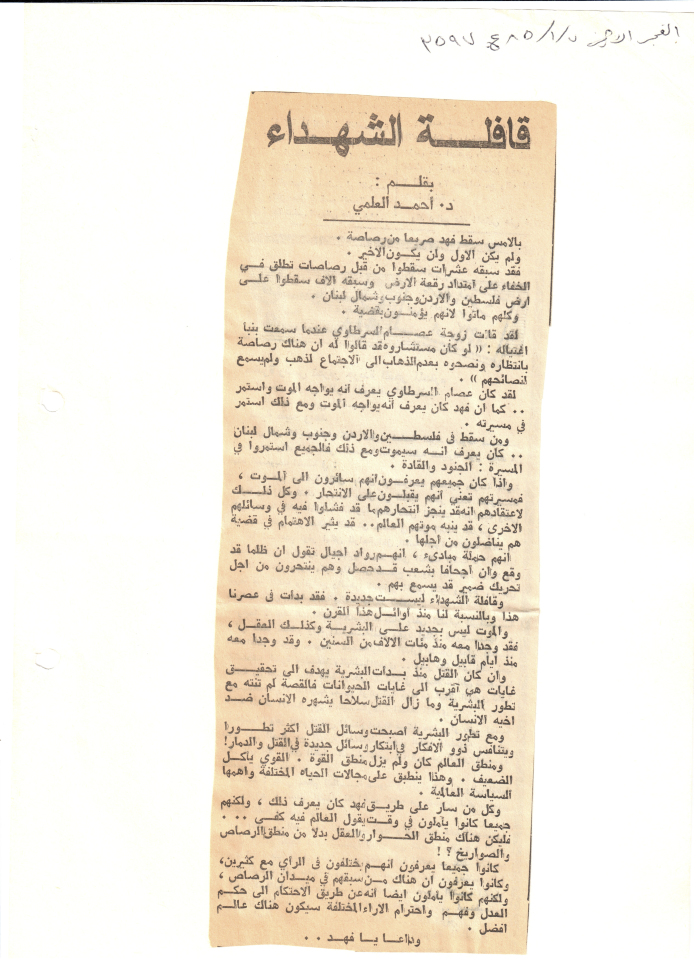 الفجر ٨٥/١/٧ ٣٥٩٧
قافلة الشهداء
بقلم :
د٠ أحمد العلمي
بالامس سقط فهد صريعا من رصاصة ٠
ولم يكن الاول ولن يكون الاخير ٠
فقد سبقه عشرات سقطوا من قبل رصاصات تطلق في
الخفاء على امتداد رقعة الارض وسبقه الاف سقطوا على
ارض فلسطين والاردن وجنوب وشمال لبنان ٠
وكلهم ماتوا لانهم يؤمنون بقضية ٠
لقد قالت زوجة عصام السرطاوي عندما سمعت بنبا
اغتياله : « لو كان مستشاروه قد قالوا له ان هناك رصاصة
بانتظاره ونصحوه بعدم الذهاب الى الاجتماع لذهب ولم يسمع
لنصائحهم » ٠
لقد كان عصام السرطاوي يعرف انه يواجه الموت واستمر
٠٠ كما ان فهد كان يعرف انه يواجه الموت ومع ذلك استمر
في مسيرته ٠
ومن سقط في فلسطين والاردن وجنوب وشمال لبنان
٠٠ كان يعرف انه سيموت ومع ذلك فالجميع استمروا في
المسيرة : الجنود والقادة ٠
واذا كان جميعهم يعرفون انهم سائرون الى الموت ،
فمسيرتهم تعني انهم يقبلون على الانتحار ٠ وكل ذلك
لاعتقادهم انه قد ينجز انتحارهم ما قد فشلوا فيه في وسائلهم
الاخرى ، قد ينبه موتهم العالم ٠٠ قد يثير الاهتمام في قضية
هم يناضلون من اجلها ٠
انهم حملة مبادىء ، انهم رواد اجيال تقول ان ظلما قد
وقع وان اجحافا بشعب قد حصل وهم ينتحرون من اجل
تحريك ضمير قد يسمع بهم ٠
وقافلة الشهداء ليست جديدة ٠ فقد بدات في عصرنا
هذا وبالنسبة لنا منذ اوائل هذا القرن ٠
والموت ليس بجديد على البشرية وكذلك العقل ،
فقد وجدا معه منذ مئات الالاف من السنين ٠ وقد وجدا معه
منذ ايام قابيل وهابيل ٠
وان كان القتل منذ بدات البشرية يهدف الى تحقيق
غايات هي أقرب الى غايات الحيوانات فالقصة لم تنته مع
تطور البشرية وما زال القتل سلاحا يشهره الانسان ضد
اخيه الانسان ٠
ومع تطور البشرية اصبحت وسائل القتل اكثر تطورا
ويتنافس ذوو الافكار في ابتكار وسائل جديدة في القتل والدمار!
ومنطق العالم كان ولم يزل منطق القوة ٠ القوي يأكل
الضعيف ٠ وهذا ينطبق على مجالات الحياه المختلفة واهمها
السياسة العالمية ٠
وكل من سار على طريق فهد كان يعرف ذلك ، ولكنهم
جميعا كانوا ياملون في وقت يقول العالم فيه كفى ٠٠٠
فليكن هناك منطق الحوار والعقل بدلا من منطق الرصاص
والصواريخ ؟ !
كانوا جميعا يعرفون انهم يختلفون في الراي مع كثيرين،
وكانوا يعرفون ان هناك من سبقهم في ميدان الرصاص ،
ولكنهم كانوا ياملون ايضا انه عن طريق الاحتكام الى حكم
العدل وفهم واحترام الاراء المختلفة سيكون هناك عالم
افضل ٠
وداعا يا فهد ٠٠